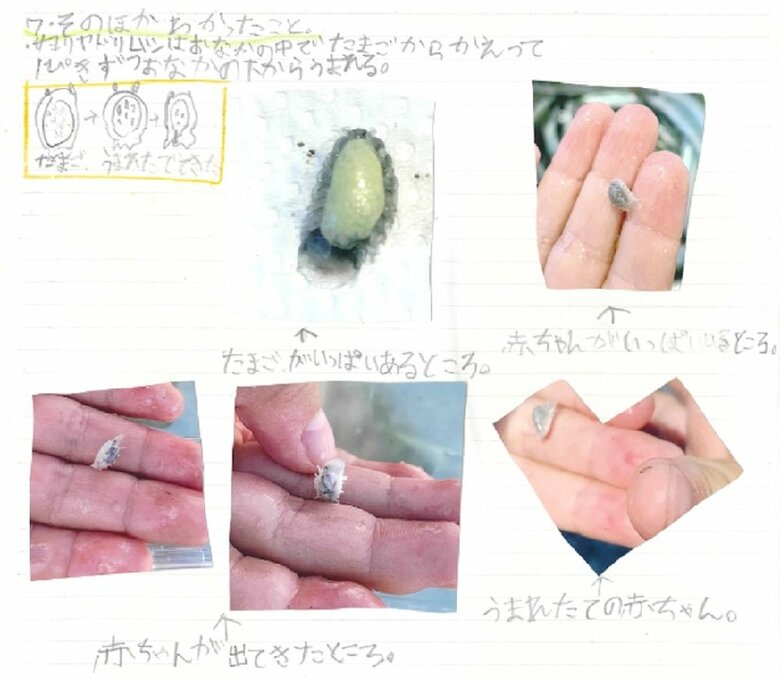 7.そのほかわかったこと。
・サヨリヤドリムシはおなかの中でたまごからかえって
1ぴきずつおなかの下からうまれる。
たまご うまれた でてきた
たまごがいっぱいあるところ。
赤ちゃんがいっぱいいるところ。
赤ちゃんが出てきたところ。
うまれたての赤ちゃん。